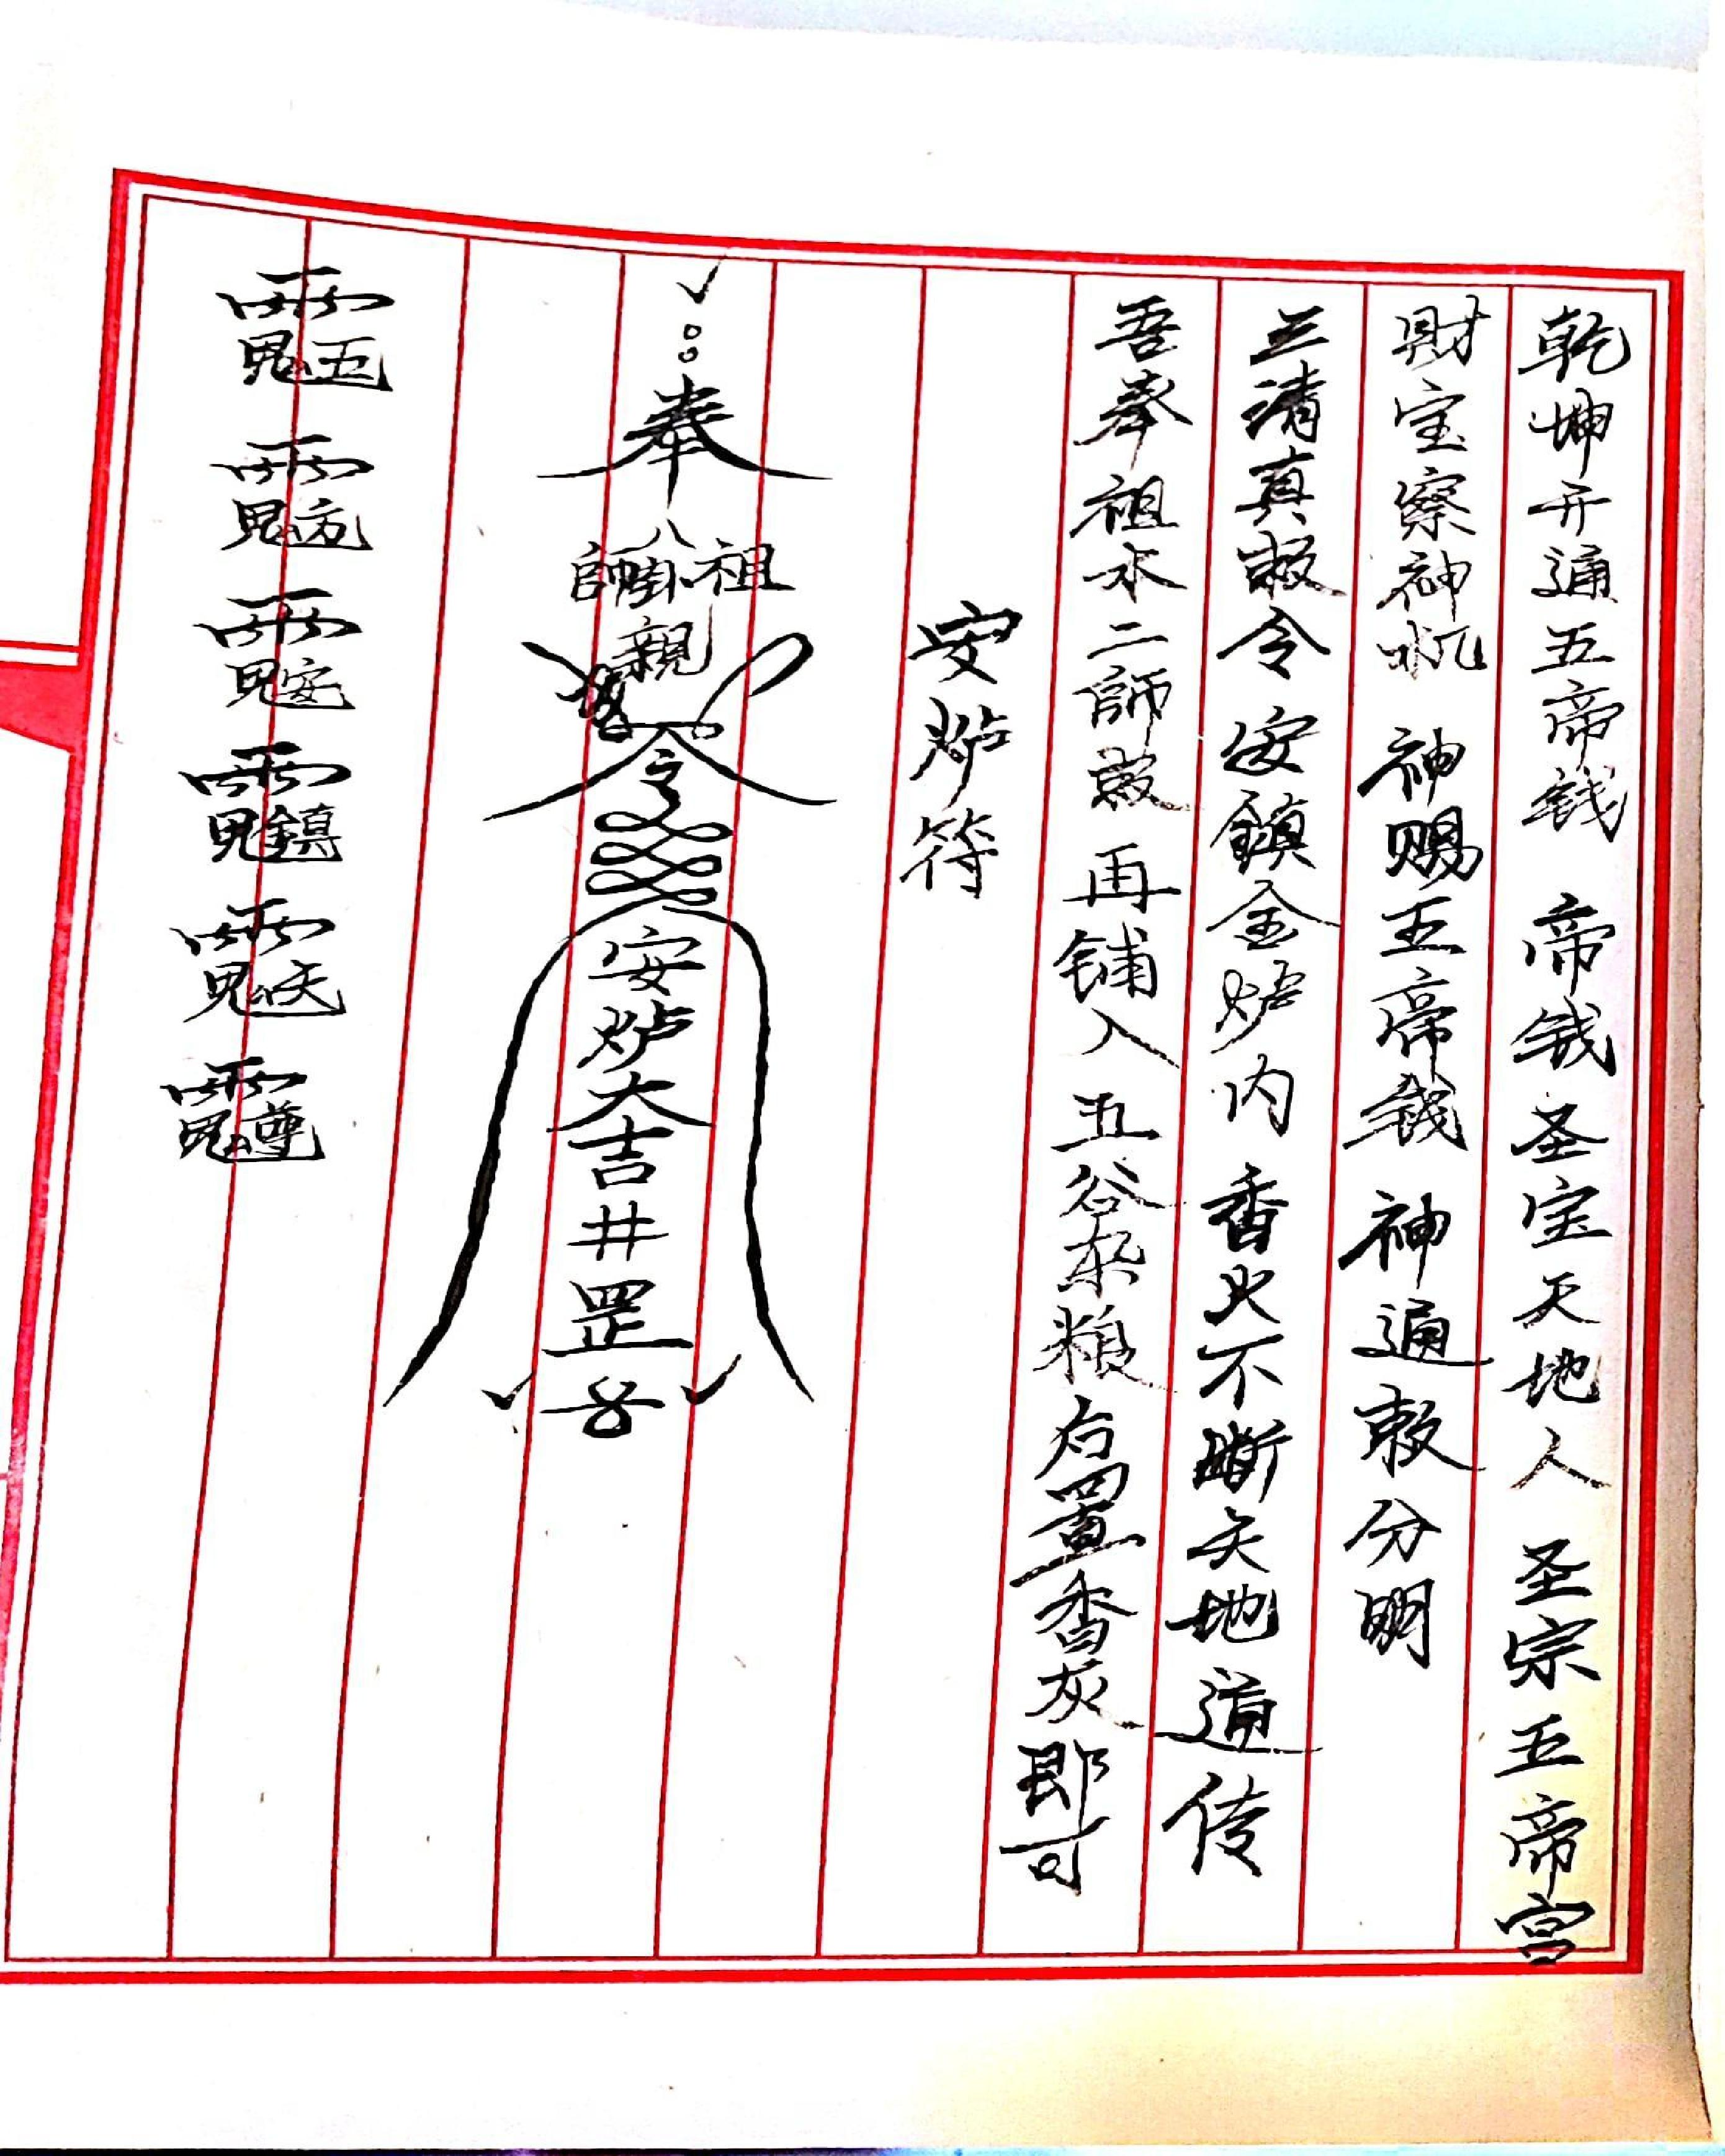 乾坤开通五帝钱 帝钱圣宝天地人 圣宗五帝宫
财宝察神机 神赐五帝钱 神通敕分明
三清真敕令 安鎮金炉内 香火不断天地道传
吾奉祖本二師敕 再铺入五谷杂粮后置香灰即可
安炉符
奉
祖師
八卦
親
令
安炉大吉井罡
五方安鎮天尊